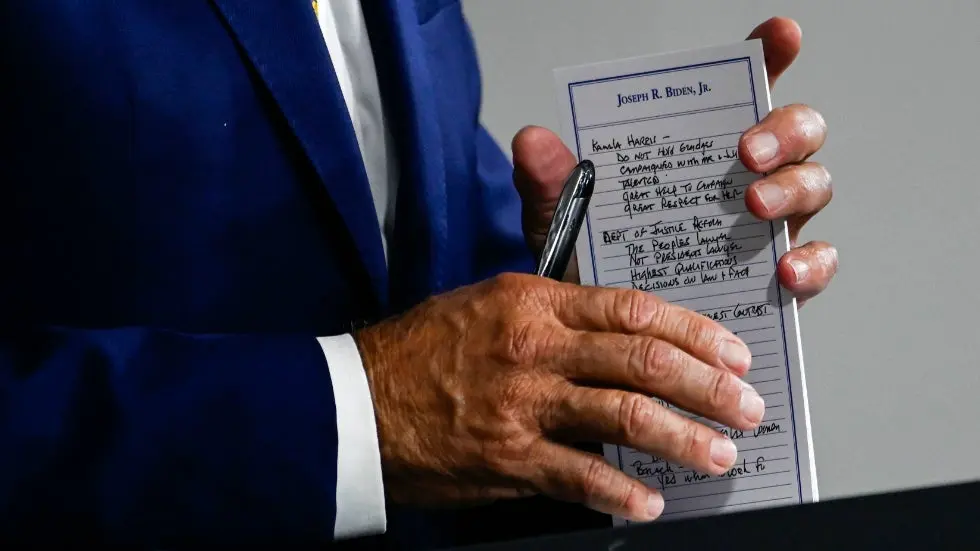 JOSEPH R. BIDEN, JR.
KAMALA HARRIS –
DO NOT HOLD GRUDGES
CAMPAIGNED WITH ME & JILL
TALENTED
GREAT HELP TO CAMPAIGN
GREAT RESPECT FOR HER
DEPT OF JUSTICE REFORM
THE PEOPLES LAWYER
NOT PRESIDENTS LAWYER
HIGHEST QUALIFICATIONS
DECISIONS ON LAW & FACT
CONTRAST
WOMAN
YES